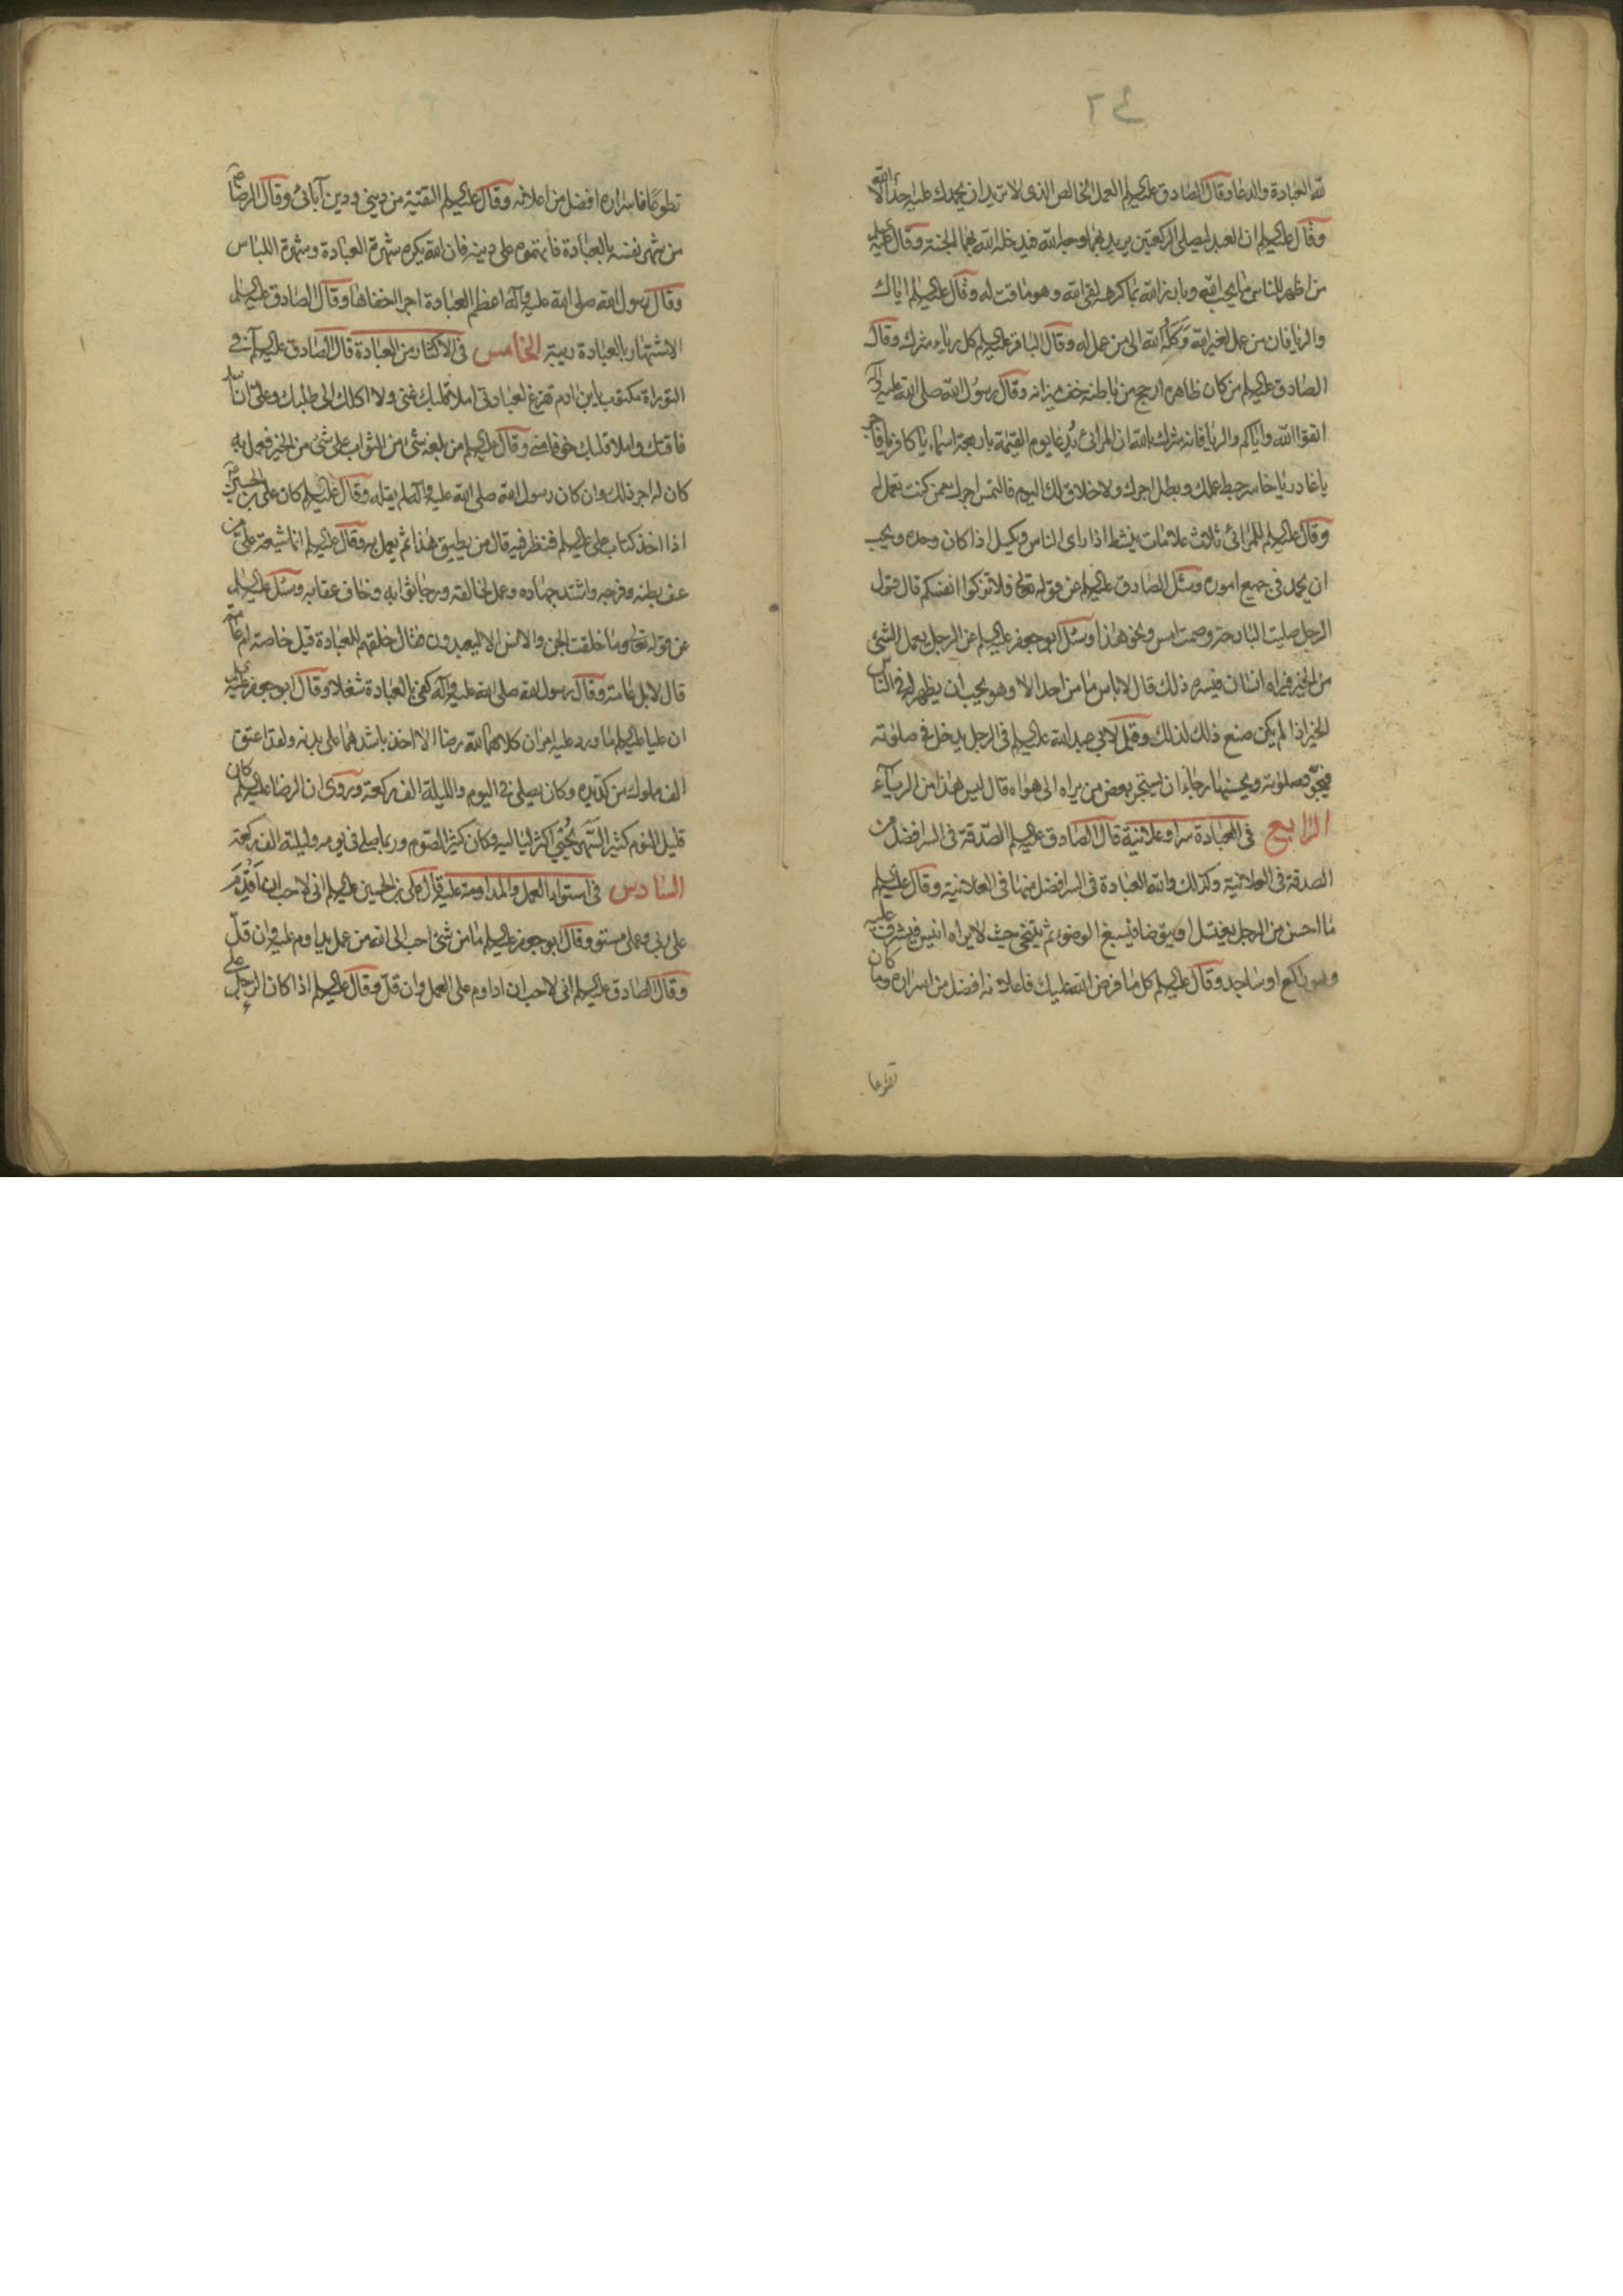 ٤٢
لله العبادة والدعا وقال الصادق عليه السلم العمل الخالص الذى لا تريد ان يحمدك عليه احد الا الله
وقال عليه السلم ان العبد ليصلى الركعتين يريد بهما وجه الله فيدخله الله بهما الجنة وقال عليه
من اظهر للناس ما يحب الله وبارز الله بما كرهه لقى الله وهو ماقت له وقال عليه السلم اياك
والريا فان من عمل لغير الله وَكَلَهُ الله الى من عمل له وقال الباقر عليه السلم كل رياء شرك وقال
الصادق عليه السلم من كان ظاهره ارجح من باطنه خف ميزانه وقال رسول الله صلى الله عليه واله
اتقوا الله واياكم والريا فانه شرك بالله ان المرائى يُدعا يوم القيمة باربعة اسماء يا كافر يا فاجر
يا غادر يا خاسر حبط عملك وبطل اجرك ولا خلاق لك اليوم فالتمس اجرك ممن كنت تعمل له
وقال عليه السلم للمرائى ثلاث علامات ينشط اذا راى الناس ويكسل اذا كان وحده ويحب
ان يحمد فى جميع اموره وسئل الصادق عليه السلم عن قوله تعالى فلا تزكوا انفسكم قال قول
الرجل صليت البارحة وصمت امس ونحو هذا وسئل ابو جعفر عليه السلم عن الرجل يعمل الشئ
من الخير فيراه انسان فيسره ذلك قال لا باس ما من احد الا وهو يحب ان يظهر له فى الناس
الخير اذا لم يكن صنع ذلك لذلك وقيل لابى عبد الله عليه السلم فى الرجل يدخل فى صلوته
فيجوّد صلوته ويحسنها رجاء ان يستجر بعض من يراه الى هواه قال ليس هذا من الرياء
الرابع فى العبادة سرا وعلانية قال الصادق عليه السلم الصدقة فى السر افضل من
الصدقة فى العلانية وكذلك والله العبادة فى السر افضل منها فى العلانية وقال عليه السلم
ما احسن من الرجل يغتسل او يتوضا فيسبغ الوضوء ثم يتنحى حيث لا يراه انيس فيشرف عليه
وهو راكع او ساجد وقال عليه السلم كل ما فرض الله عليك فاعلانه افضل من اسراره وما كان
تطوعا
تطوعًا فاسراره افضل من اعلانه وقال عليه السلم التقية من دينى ودين آبائى وقال الرضا ع
من شهر نفسه بالعبادة فاتهموه على دينه فان الله يكره شهرة العبادة وشهرة اللباس
وقال رسول الله صلى الله عليه وآله اعظم العبادة اجرا اخفاها وقال الصادق عليه السلم
الاشتهار بالعبادة ريبة الخامس فى الاكثار من العبادة قال الصادق عليه السلم فى
التوراة مكتوب يابن ادم تفرغ لعبادتى املا قلبك غنى ولا اكلك الى طلبك وعلىّ ان اسد
فاقتك واملا قلبك خوفا منى وقال عليه السلم من بلغه شئ من الثواب على شئ من الخير فعمل به
كان له اجر ذلك وان كان رسول الله صلى الله عليه وآله لم يقله وقال عليه السلم كان على بن الحسين ع
اذا اخذ كتاب على عليه السلم فنظر فيه قال من يطيق هذا ثم يعمل به وقال عليه السلم انما شيعة على من
عف بطنه وفرجه واشتد جهاده وعمل لخالقه ورجا ثوابه وخاف عقابه وسئل عليه السلم
عن قوله تعالى وما خلقت الجن والانس الا ليعبدون فقال خلقهم للعبادة قيل خاصة ام عامة
قال لا بل عامة وقال رسول الله صلى الله عليه وآله كفى بالعبادة شغلا وقال ابو جعفر عليه
ان عليا عليه السلم ما ورد عليه امران كلاهما لله رضا الا اخذ باشدهما على بدنه ولقد اعتق
الف مملوك من كد يده وكان يصلى فى اليوم والليلة الف ركعة وروى ان الرضا عليه السلم كان
قليل النوم كثير السهر يُحيى اكثر لياليه وكان كثير الصوم وربما صلى فى يومه وليلته الف ركعة
السادس فى استواء العمل والمداومة عليه قال على بن الحسين عليه السلم انى لاحب ان اقدم
على ربى وعملى مستو وقال ابو جعفر عليه السلم ما من شئ احب الى الله من عمل يداوم عليه وان قلّ
وقال الصادق عليه السلم انى لاحب ان اداوم على العمل وان قلّ وقال عليه السلم اذا كان الرجل على